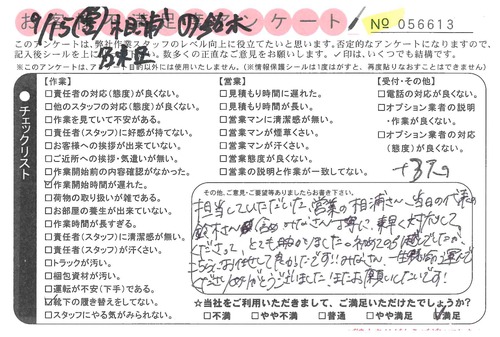 9/15
アンケート
No 056613
このアンケートは、弊社作業スタッフのレベル向上に役立てたいと思います。否定的なアンケートになりますので、
記入後シールを上に
数多くの正直なご意見をお願いします。✓印は、いくつでも結構です。
※このアンケートは、アンケート目的以外には使用いたしません。(※情報保護シールは1度はがすと、再度貼りなおすことはできません)
チェックリスト
【作業】
□責任者の対応(態度)が良くない。
□他のスタッフの対応(態度)が良くない。
□作業を見ていて不安がある。
□責任者(スタッフ)に好感が持てない。
□お客様への挨拶が出来ていない。
□ご近所への挨拶・気遣いが無い。
□作業開始前の内容確認がなかった。
□作業開始時間が遅れた。
□荷物の取り扱いが雑である。
□お部屋の養生が出来ていない。
□作業時間が長すぎる。
□責任者(スタッフ)に清潔感が無い。
□責任者(スタッフ)が汗くさい。
□トラックが汚い。
□梱包資材が汚い。
□運転が不安(下手)である。
□靴下の履き替えをしてない。
□スタッフにやる気がみられない。
【営業】
□見積もり時間に遅れた。
□見積もり時間が長い。
□営業マンに清潔感が無い。
□営業マンが煙草くさい。
□営業マンが汗くさい。
□営業態度が良くない。
□営業の説明と作業が一致してない。
【受付・その他】
□電話の対応が良くない。
□オプション業者の説明
・作業が良くない。
□オプション業者の対応
(態度)が良くない。
その他、ご意見・ご要望等ありましたらお書き下さい。
担当していただいた、営業の相浦さん、当日の代表の
鈴木さん含め、みなさん丁寧に、素早く対応して
くださって、とても助かりました。
ありがとうございました。またお願いしたいです!
☆当社をご利用いただきまして、ご満足いただけたでしょうか?
□不満 □やや不満 □普通 □やや満足 ☑満足